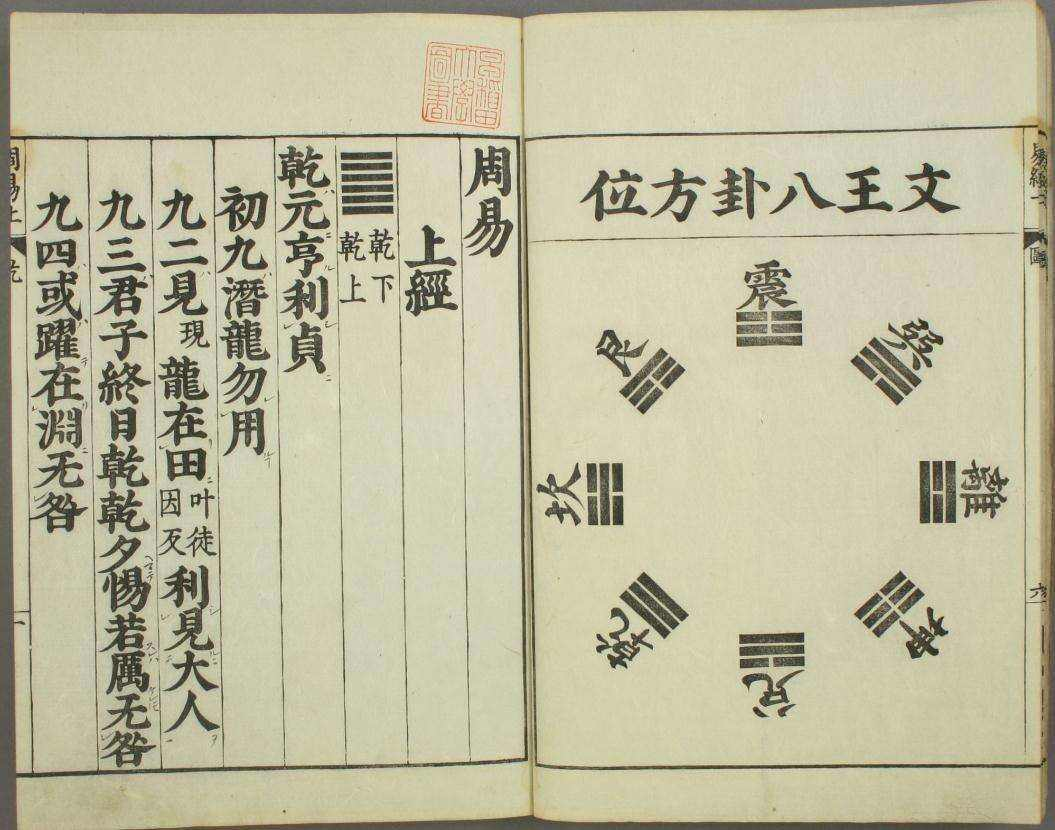 文王八卦方位
震
巽
離
坤
兌
乾
坎
艮
周易
上經
乾下
乾上
乾元亨利貞
初九潛龍勿用
九二見現龍在田叶徒因反利見大人
九三君子終日乾乾夕惕若厲无咎
九四或躍在淵无咎
周易上
乾
一